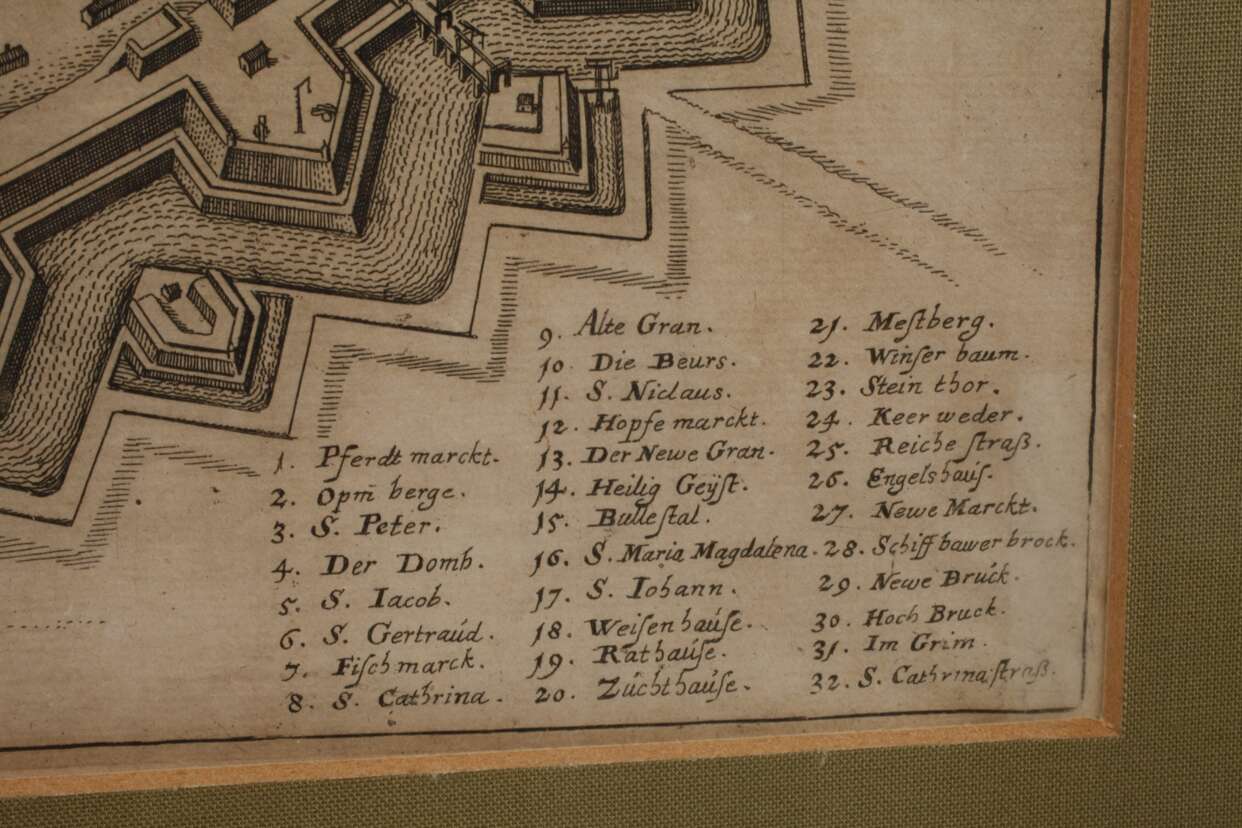 1. Pferdt marckt.
2. Opm berge.
3. S. Peter.
4. Der Domb.
5. S. Iacob.
6. S. Gertraúd.
7. Fiſch marck.
8. S. Cathrina.
9. Alte Gran.
10. Die Beurs.
11. S. Niclaus.
12. Hopfe marckt.
13. Der Newe Gran.
14. Heilig Geÿſt.
15. Bulleſtal.
16. S. Maria Magdalena.
17. S. Iohann.
18. Weiſenhaúſe.
19. Rathaúſe.
20. Zúchthaúſe.
21. Meſtberg.
22. Winſer baum.
23. Stein thor.
24. Keer weder.
25. Reiche ſtraß.
26. Engelshaúſ.
27. Newe Marckt.
28. Schiffbawer brock.
29. Newe Brúck.
30. Hoch Bruck.
31. Im Grim.
32. S. Cathrinaſtraß.